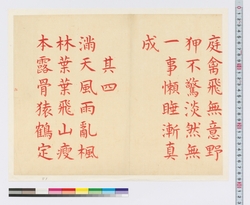 庭禽飛無意野
狎不驚淡然無
一事懶睡漸真
成
其四
滿天風雨亂楓
林葉葉飛山瘦
本露骨猿鶴定